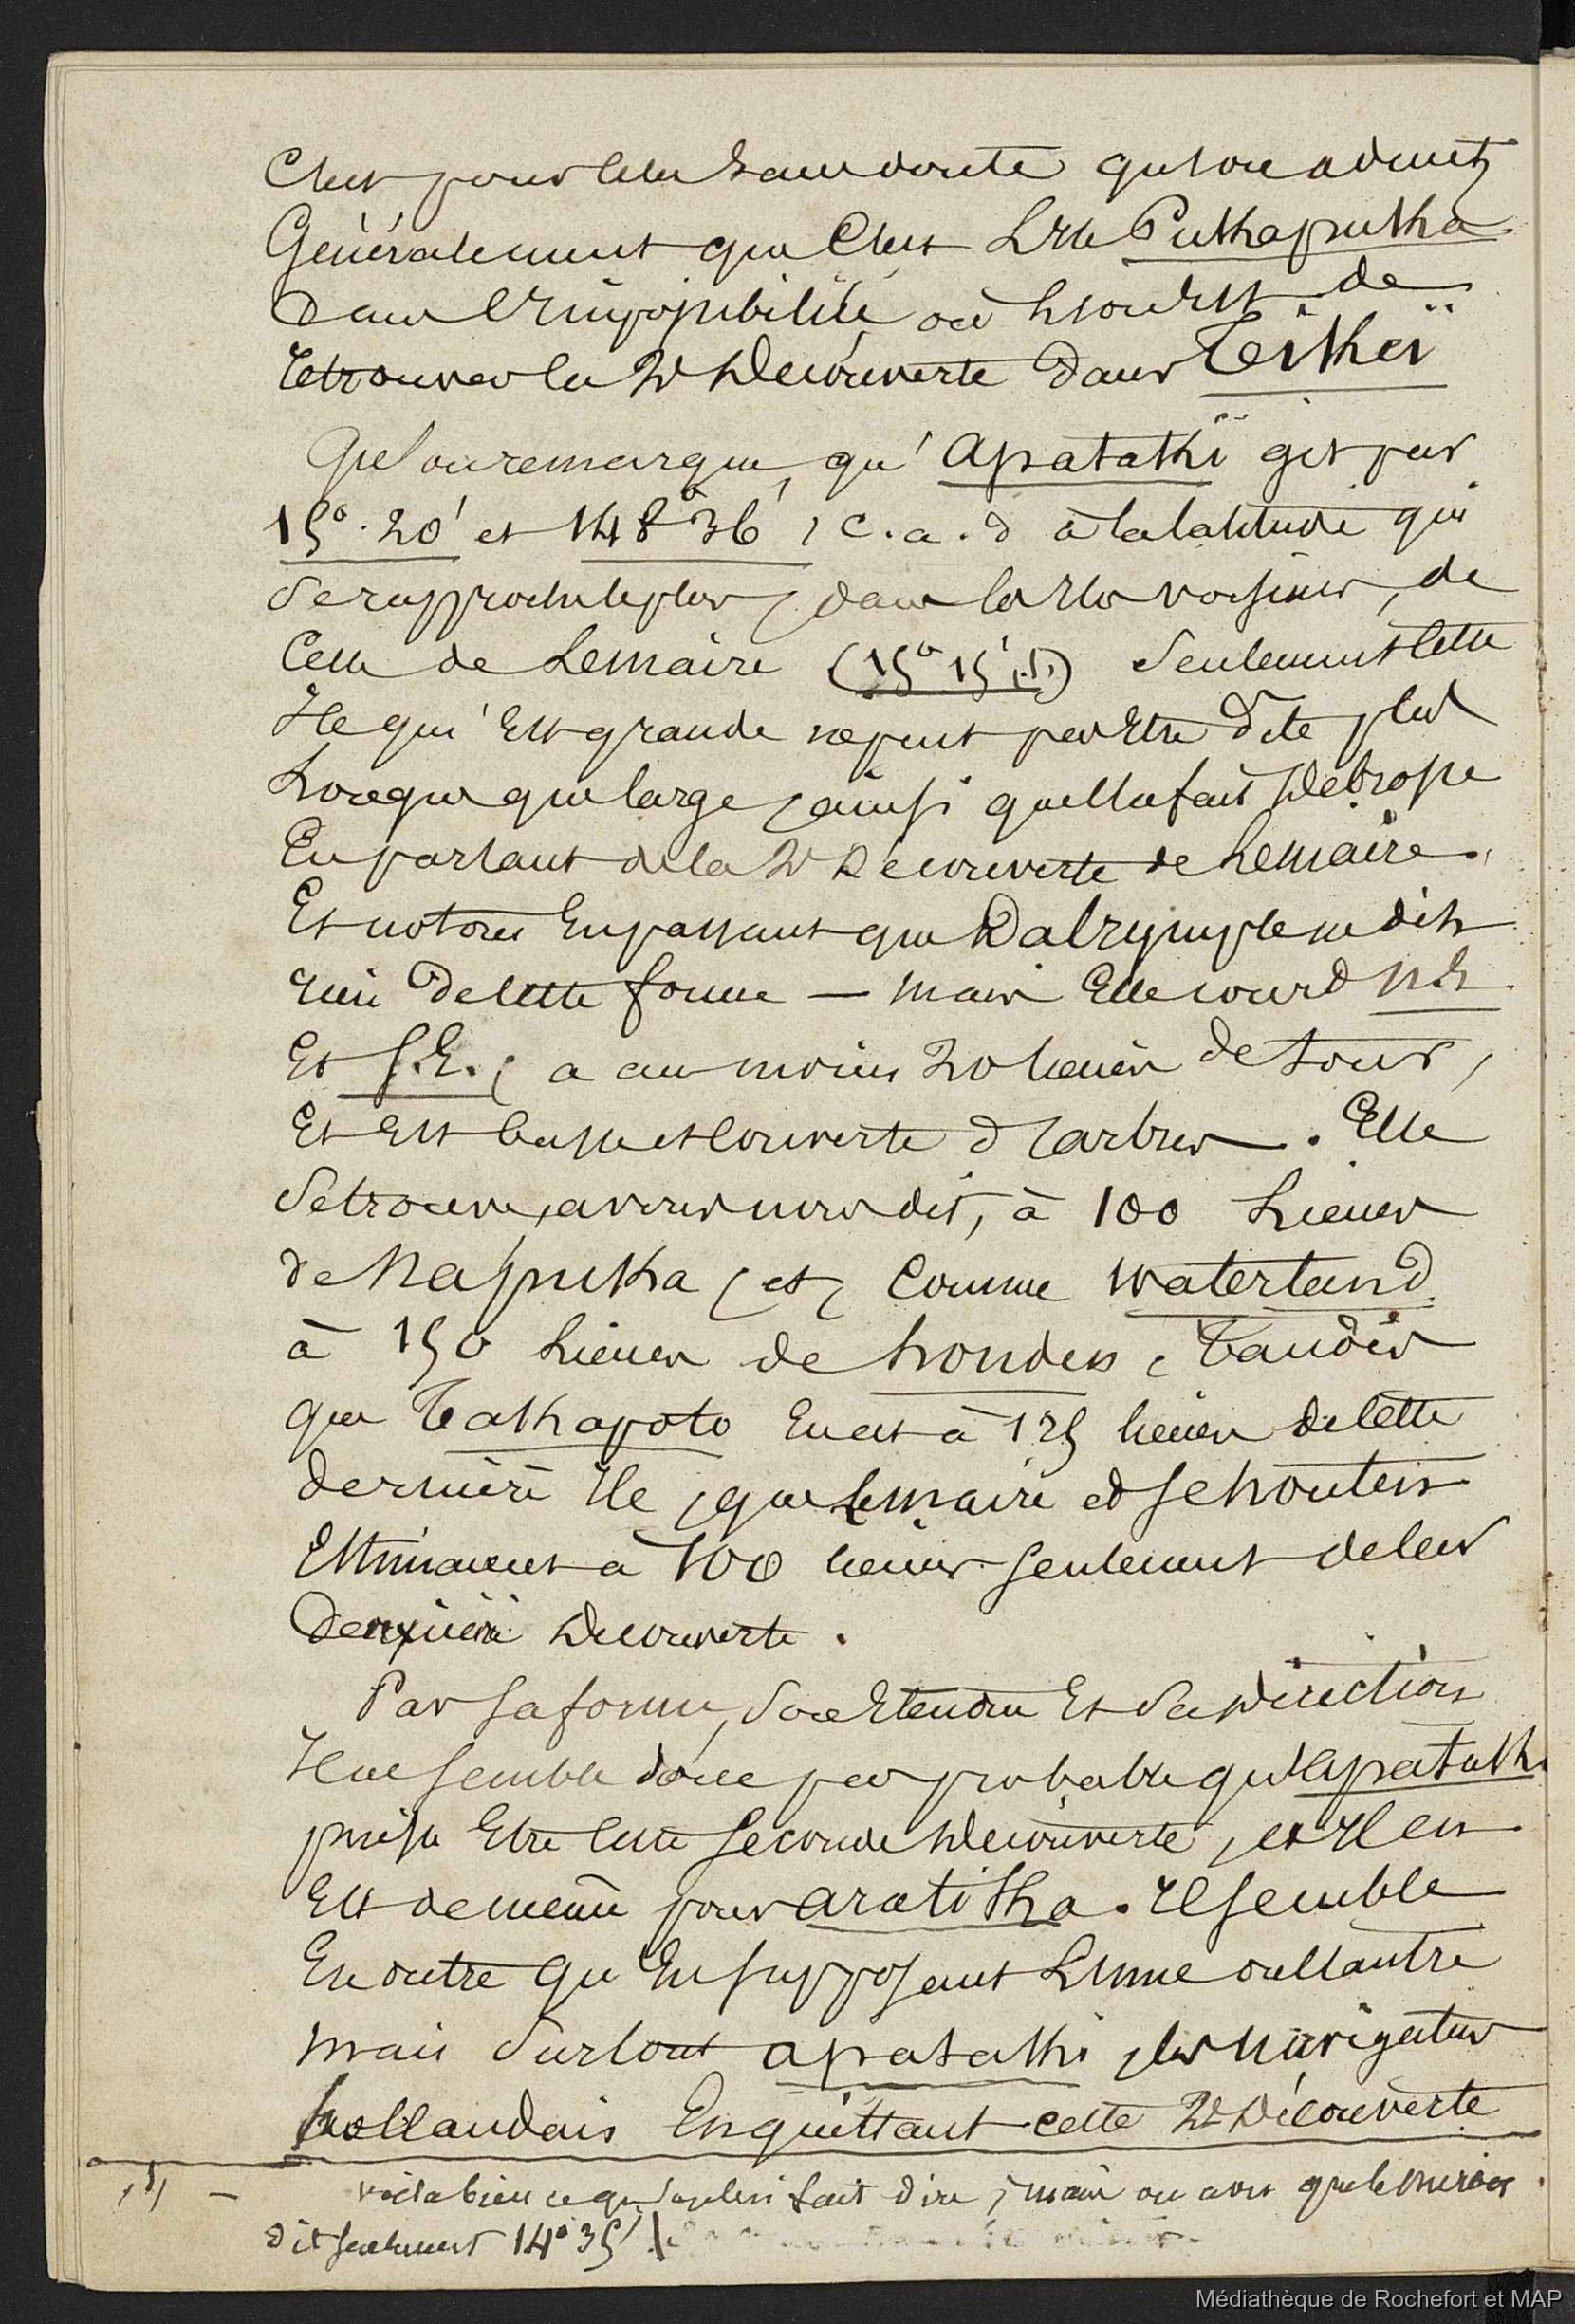 C'est pour cela sans doute qu'on admet
Généralement que C'est L'Ile Pukapuka
Dans l'impossibilité où l'on est de
retrouver la 2e Découverte dans Teikei
Que l'on remarque, qu'Apatakï git par
15°.20' et 148°36', c.a.d à la latitude qui
Se rapproche le plus, dans les Iles voisines, de
Celle de Lemaire (15°15' S.) Seulement cette
Ile qui Est grande ne peut pas Etre dite plus
Longue que large, ainsi que l'a fait Debrosse
En parlant de la 2e Découverte de Lemaire.
Et notons En passant que Dalrymple ne dit
rien de cette forme — mais Elle court N.E
Et S.E., a au moins 20 lieues de tour,
Et Est basse et couverte d'arbres. Elle
Se trouve, avons nous dit, à 100 Lieues
de Napuka, et, Comme Waterland
à 150 Lieues de honden, Tandis
que Takapoto En est à 125 lieues de cette
dernière Ile, que Lemaire et Schouten
Estimaient à 100 lieues seulement de leur
Deuxième Découverte.
Par sa forme, Son Etendue Et Sa Direction
Il ne semble donc pas probable qu'Apatak
puisse Etre cette seconde Découverte, et Il en
Est de même pour aratika. Il semble
En outre qu'En supposant L'une ou l'autre
mais Surtout apataki, les Navigateurs
hollandais En quittant cette 2e Découverte
(1) — voilà bien ce qu'on lui fait dire, mais on a vu que lemaire
dit seulement 14°35' !